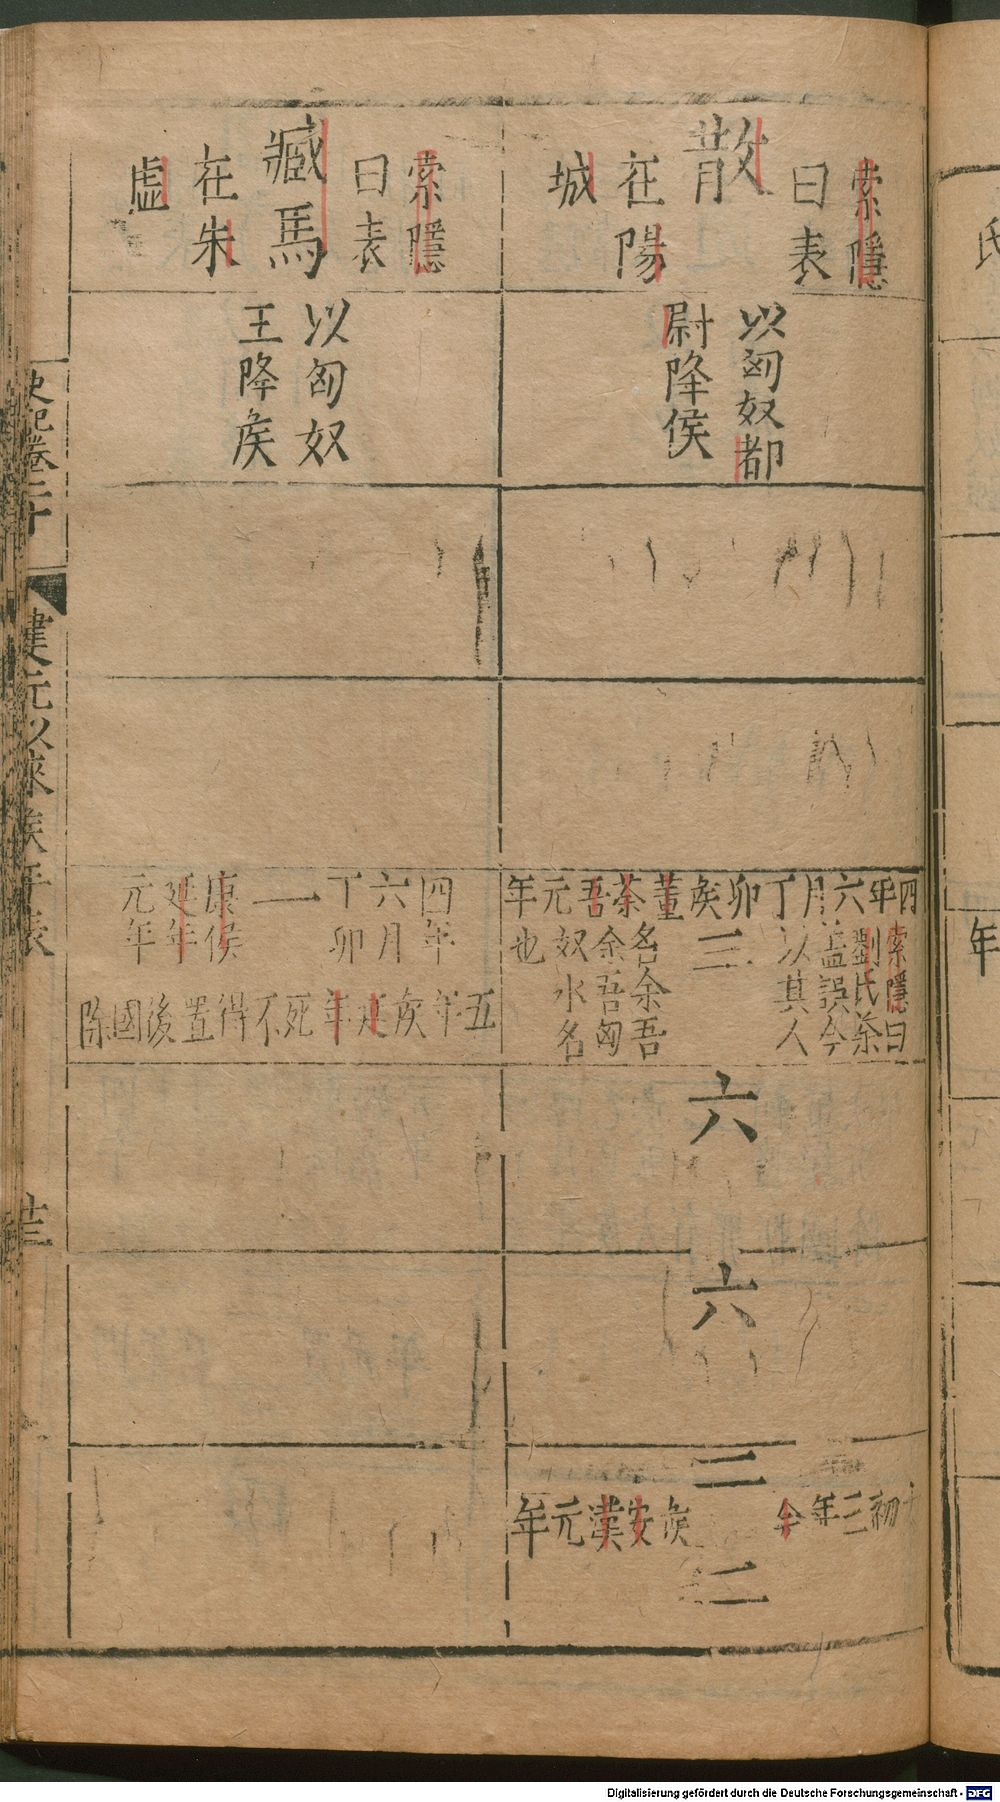 氏
年
索隱
曰表
散
在陽
城
以匈奴都
尉降侯
四年六月丁卯侯董荼吾元年
索隱曰
劉氏荼
蓋誤今
以其人
三
名余吾
余吾匈
奴水名
也
六
六
二
初三年今侯安漢元年
二
索隱
曰表
臧馬
在朱
虛
以匈奴
王降侯
四年
六月
丁卯
一
康侯
延年
元年
五年侯延年死不得置後國除
史記卷二十
建元以來侯年表
Digitalisierung gefördert durch die Deutsche Forschungsgemeinschaft - DFG